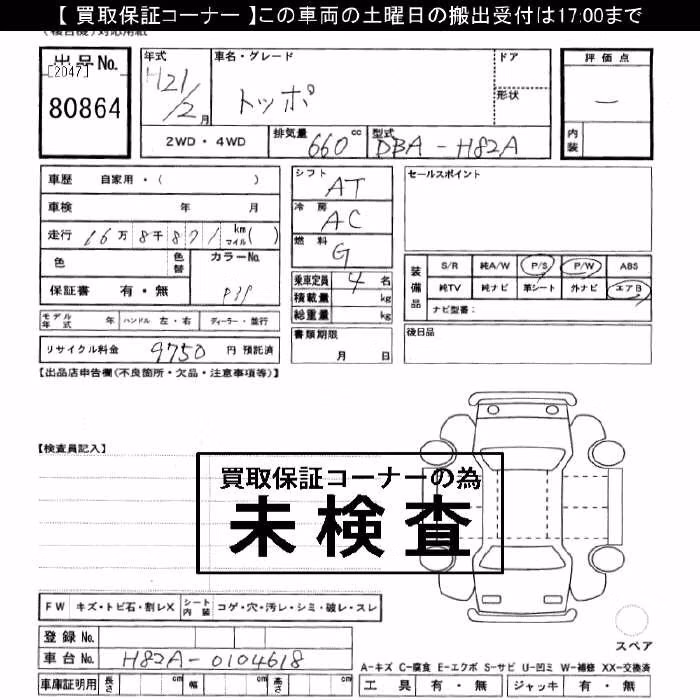 【 買取保証コーナー 】この車両の土曜日の搬出受付は17:00まで
(複合機)対応用紙
出品No.
[2047]
80864
年式
H21/2月
車名・グレード
トッポ
ドア
形状
評価点
—
内装
2WD・4WD
排気量 660 cc
型式 DBA-H82A
車歴 自家用・( )
車検 年 月
走行 16万8千871 km マイル( )
色
色替
カラーNo.
P39
保証書 有・無
シフト AT
冷房 AC
燃料 G
乗車定員 4 名
積載量 kg
総重量 kg
セールスポイント
装備品
S/R 純A/W P/S P/W ABS
純TV 純ナビ 革シート 外ナビ エアB
ナビ型番:
モデル年式 年 ハンドル 左・右 ディーラー・並行
リサイクル料金 9750 円 預託済
書類期限
月 日
後日品
【出品店申告欄(不良箇所・欠品・注意事項等)】
【検査員記入】
買取保証コーナーの為
未検査
FW キズ・トビ石・割レX シート内装 コゲ・穴・汚レ・シミ・破レ・スレ
登録No.
車台No. H82A-0104618
車庫証明用 長さ cm 幅 cm 高さ cm
スペア
A-キズ C-腐食 E-エクボ S-サビ U-凹ミ W-補修 XX-交換済
工具 有・無 ジャッキ 有・無